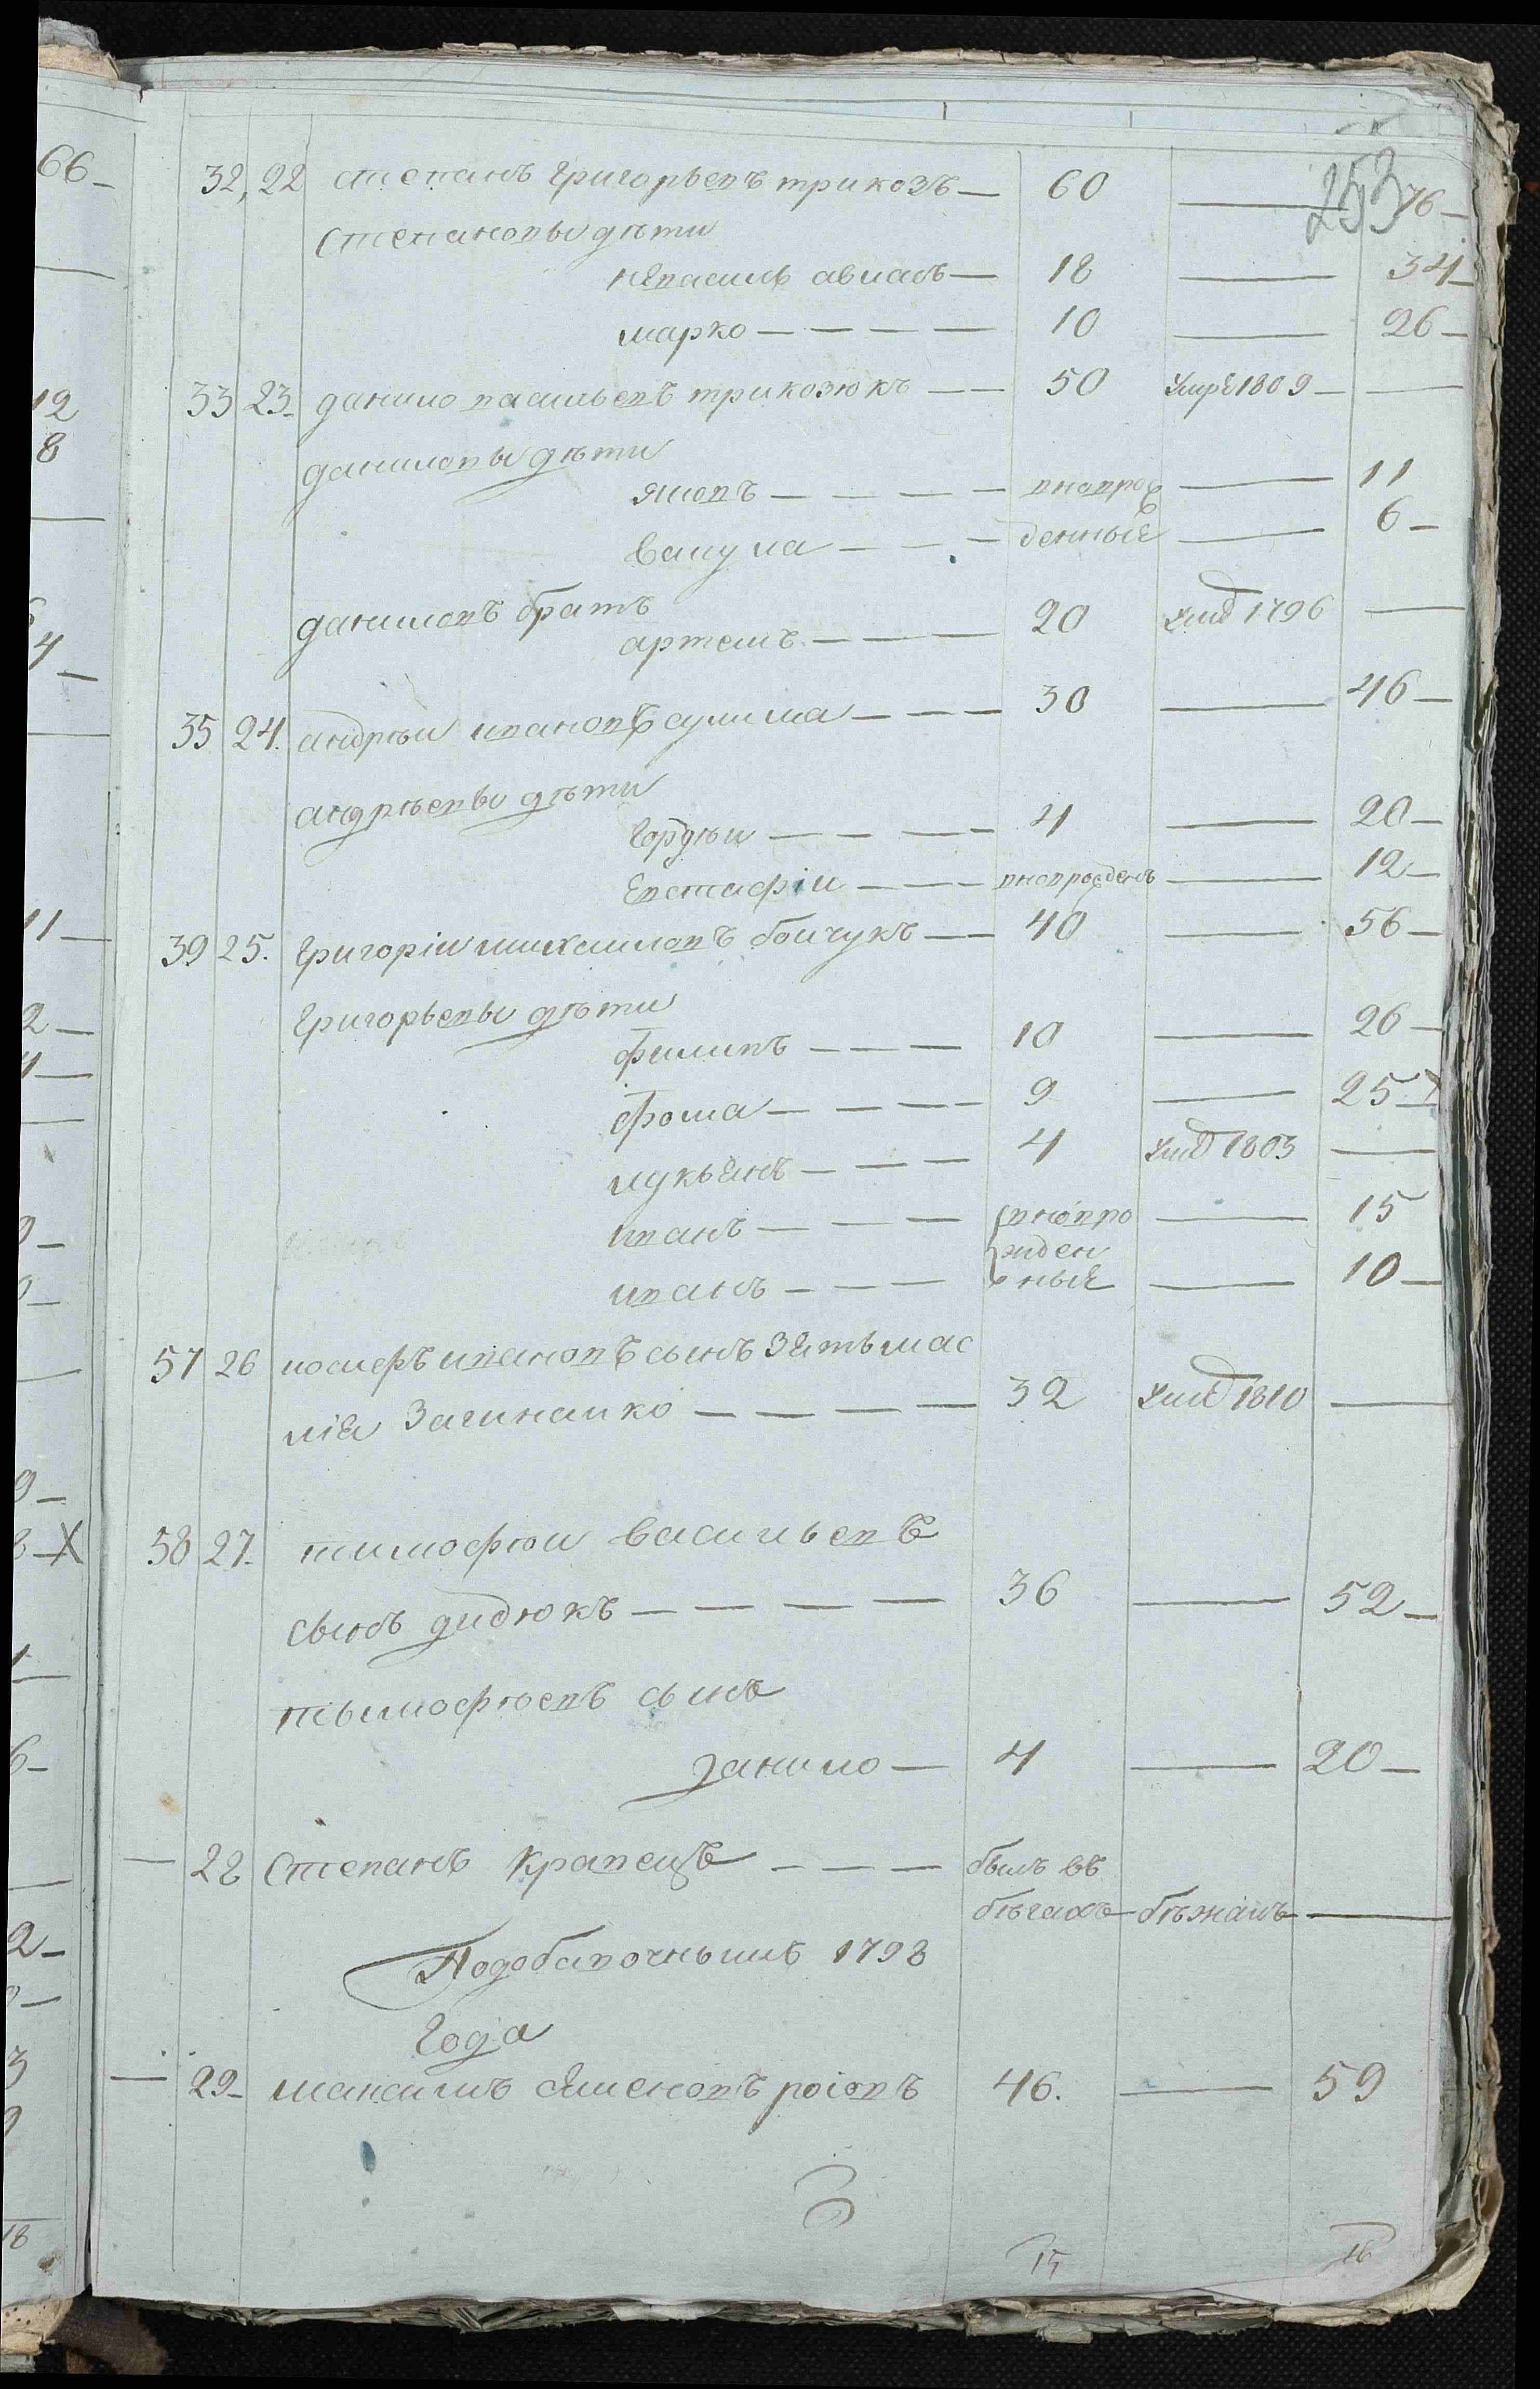 253
32, 22 степанъ григорьевъ трикозъ — 60 — 76 —
Степановы дѣти
авиабъ — 18 — 34 —
марко — — — — 10 — 26 —
33 23. данило васильевъ трикозюкъ — — 50 умре 1809 — —
даниловы дѣти
яковъ — — — — вноврож — 11
вакула — — — денные — 6 —
даниловъ братъ
артемъ — — — 20 умр 1796 —
35 24. андрѣи ивановъ сулима — — — 30 — 46 —
андрѣевы дѣти
гордѣи — — — — 4 — 20 —
Евстафіи — — — вноврожденъ — 12 —
39 25. григоріи михаиловъ боичукъ — — 40 — 56 —
григорьевы дѣти
филипъ — — — 10 — 26 —
фома — — — — 9 — 25 —
лукьянъ — — — 4 умр 1803 —
иванъ — — — вновро — 15
жден
иванъ — — — ные — 10 —
57 26 иосифъ ивановъ сынъ зять мас
лія Загинаико — — — — 32 умр 1810 —
58 27. тимофѣи васильевъ
сынъ дидюкъ — — — — 36 — 52 —
тымофѣевъ сынъ
данило — 4 — 20 —
— 28 Степанъ кравецъ — — — былъ въ
бѣгахъ — бѣжалъ —
Подобавочнымъ 1798
Года
— 29 — максимъ семеновъ роіовъ 46. — 59
15 16
66 —
12
8
4 —
11 —
2 —
8 — X
6 —
2 —
3
18